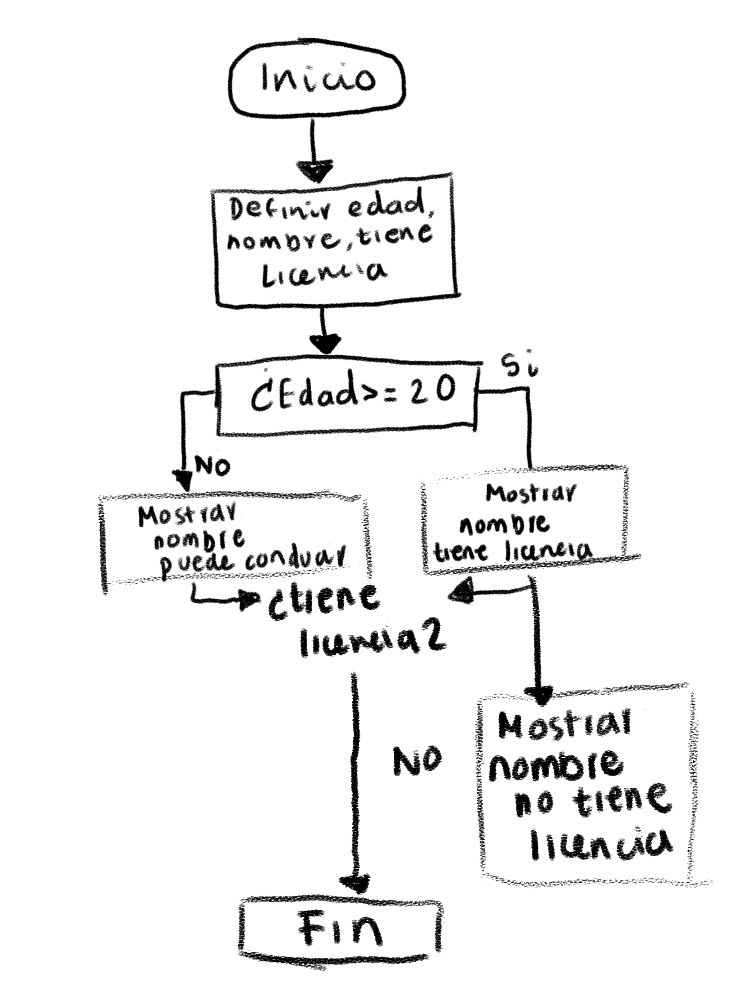 Inicio
Definir edad,
nombre, tiene
Licencia
¿Edad>= 20
Si
NO
Mostrar
nombre
puede conducir
Mostrar
nombre
tiene licencia
¿tiene
licencia?
NO
Mostrar
nombre
no tiene
licencia
Fin